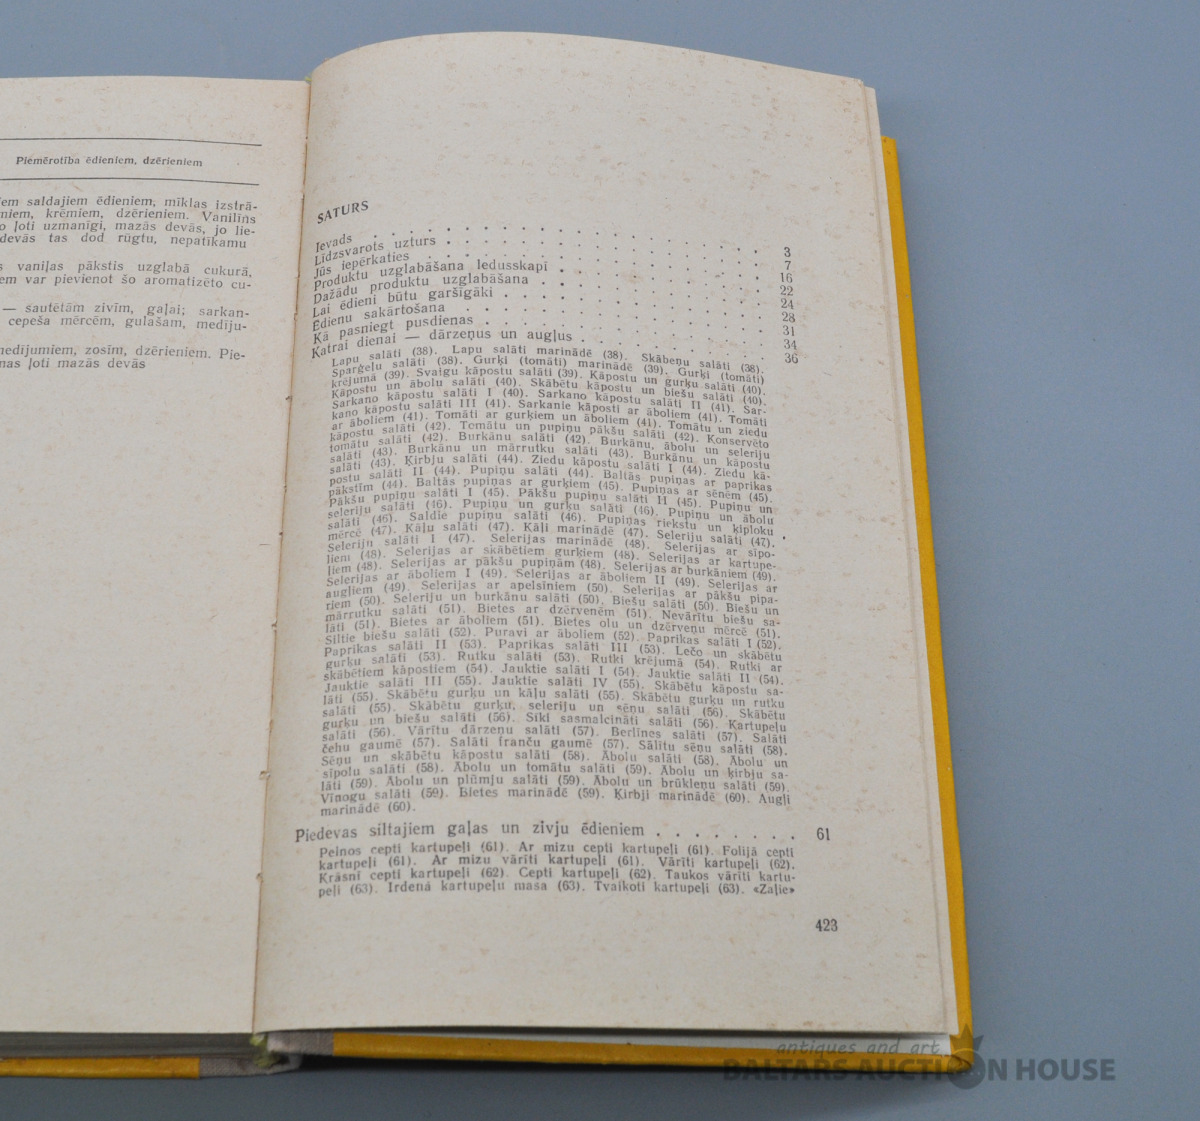 Piemērotība ēdieniem, dzērieniem
em saldajiem ēdieniem, mīklas izstrā-
niem, krēmiem, dzērieniem. Vanilīns
o ļoti uzmanīgi, mazās devās, jo lie-
devās tas dod rūgtu, nepatīkamu
s vaniļas pākstis uzglabā cukurā,
em var pievienot šo aromatizēto cu-
— sautētām zivīm, gaļai; sarkan-
cepeša mērcēm, gulašam, medīju-
medījumiem, zosīm, dzērieniem. Pie-
nas ļoti mazās devās
SATURS
Ievads . . . 3
Līdzsvarots uzturs . . . 7
Jūs iepērkaties . . . 16
Produktu uzglabāšana ledusskapī . . . 22
Dažādu produktu uzglabāšana . . . 24
Lai ēdieni būtu garšīgāki . . . 28
Ēdienu sakārtošana . . . 31
Kā pasniegt pusdienas . . . 34
Katrai dienai — dārzeņus un augļus . . . 36
Lapu salāti (38). Lapu salāti marinādē (38). Skābeņu salāti (38).
Sparģeļu salāti (38). Gurķi (tomāti) marinādē (39). Gurķi (tomāti)
krējumā (39). Svaigu kāpostu salāti (39). Kāpostu un gurķu salāti (40).
Kāpostu un ābolu salāti (40). Skābētu kāpostu un biešu salāti (40).
Sarkano kāpostu salāti I (40). Sarkano kāpostu salāti II (41). Sar-
kano kāpostu salāti III (41). Sarkanie kāposti ar āboliem (41). Tomāti
ar āboliem (41). Tomāti ar gurķiem un āboliem (41). Tomātu un ziedu
kāpostu salāti (42). Tomātu un pupiņu pākšu salāti (42). Konservēto
tomātu salāti (42). Burkānu salāti (42). Burkānu, ābolu un seleriju
salāti (43). Burkānu un mārrutku salāti (43). Burkānu un kāpostu
salāti (43). Ķirbju salāti (44). Ziedu kāpostu salāti I (44). Ziedu kā-
postu salāti II (44). Pupiņu salāti (44). Baltās pupiņas ar paprikas
pākstīm (44). Baltās pupiņas ar gurķiem (45). Pupiņas ar sēnēm (45).
Pākšu pupiņu salāti I (45). Pākšu pupiņu salāti II (45). Pupiņu un
seleriju salāti (46). Pupiņu un gurķu salāti (46). Pupiņu un ābolu
salāti (46). Saldie pupiņu salāti (46). Pupiņas riekstu un ķiploku
mērcē (47). Kāļu salāti (47). Kāļi marinādē (47). Seleriju salāti (47).
Seleriju salāti I (47). Selerijas marinādē (48). Selerijas ar sīpo-
liem (48). Selerijas ar skābētiem gurķiem (48). Selerijas ar kartupe-
ļiem (48). Selerijas ar pākšu pupiņām (48). Selerijas ar burkāniem (49).
Selerijas ar āboliem I (49). Selerijas ar āboliem II (49). Selerijas ar
augļiem (49). Selerijas ar apelsīniem (50). Selerijas ar pākšu pipa-
riem (50). Seleriju un burkānu salāti (50). Biešu salāti (50). Biešu un
mārrutku salāti (51). Bietes ar dzērvenēm (51). Nevārītu biešu sa-
lāti (51). Bietes ar āboliem (51). Bietes olu un dzērveņu mērcē (51).
Siltie biešu salāti (52). Puravi ar āboliem (52). Paprikas salāti I (52).
Paprikas salāti II (53). Paprikas salāti III (53). Lečo un skābētu
gurķu salāti (53). Rutku salāti (53). Rutki krējumā (54). Rutki ar
skābētiem kāpostiem (54). Jauktie salāti I (54). Jauktie salāti II (54).
Jauktie salāti III (55). Jauktie salāti IV (55). Skābētu kāpostu sa-
lāti (55). Skābētu gurķu un kāļu salāti (55). Skābētu gurķu un rutku
salāti (55). Skābētu gurķu, seleriju un sēņu salāti (56). Skābētu
gurķu un biešu salāti (56). Sīki sasmalcināti salāti (56). Kartupeļu
salāti (56). Vārītu dārzeņu salāti (57). Berlīnes salāti (57). Salāti
čehu gaumē (57). Salāti franču gaumē (57). Sālītu sēņu salāti (58).
Sēņu un skābētu kāpostu salāti (58). Ābolu salāti (58). Ābolu un
sīpolu salāti (58). Ābolu un tomātu salāti (59). Ābolu un ķirbju sa-
lāti (59). Ābolu un plūmju salāti (59). Ābolu un brūkleņu salāti (59).
Vīnogu salāti (59). Bietes marinādē (59). Ķirbji marinādē (60). Augļi
marinādē (60).
Piedevas siltajiem gaļas un zivju ēdieniem . . . 61
Pelnos cepti kartupeļi (61). Ar mizu cepti kartupeļi (61). Folijā cepti
kartupeļi (61). Ar mizu vārīti kartupeļi (61). Vārīti kartupeļi (62).
Krāsnī cepti kartupeļi (62). Cepti kartupeļi (62). Taukos vārīti kartu-
peļi (63). Irdenā kartupeļu masa (63). Tvaikoti kartupeļi (63). «Zaļie»
423
antiques and art
BALTARS AUCTION HOUSE